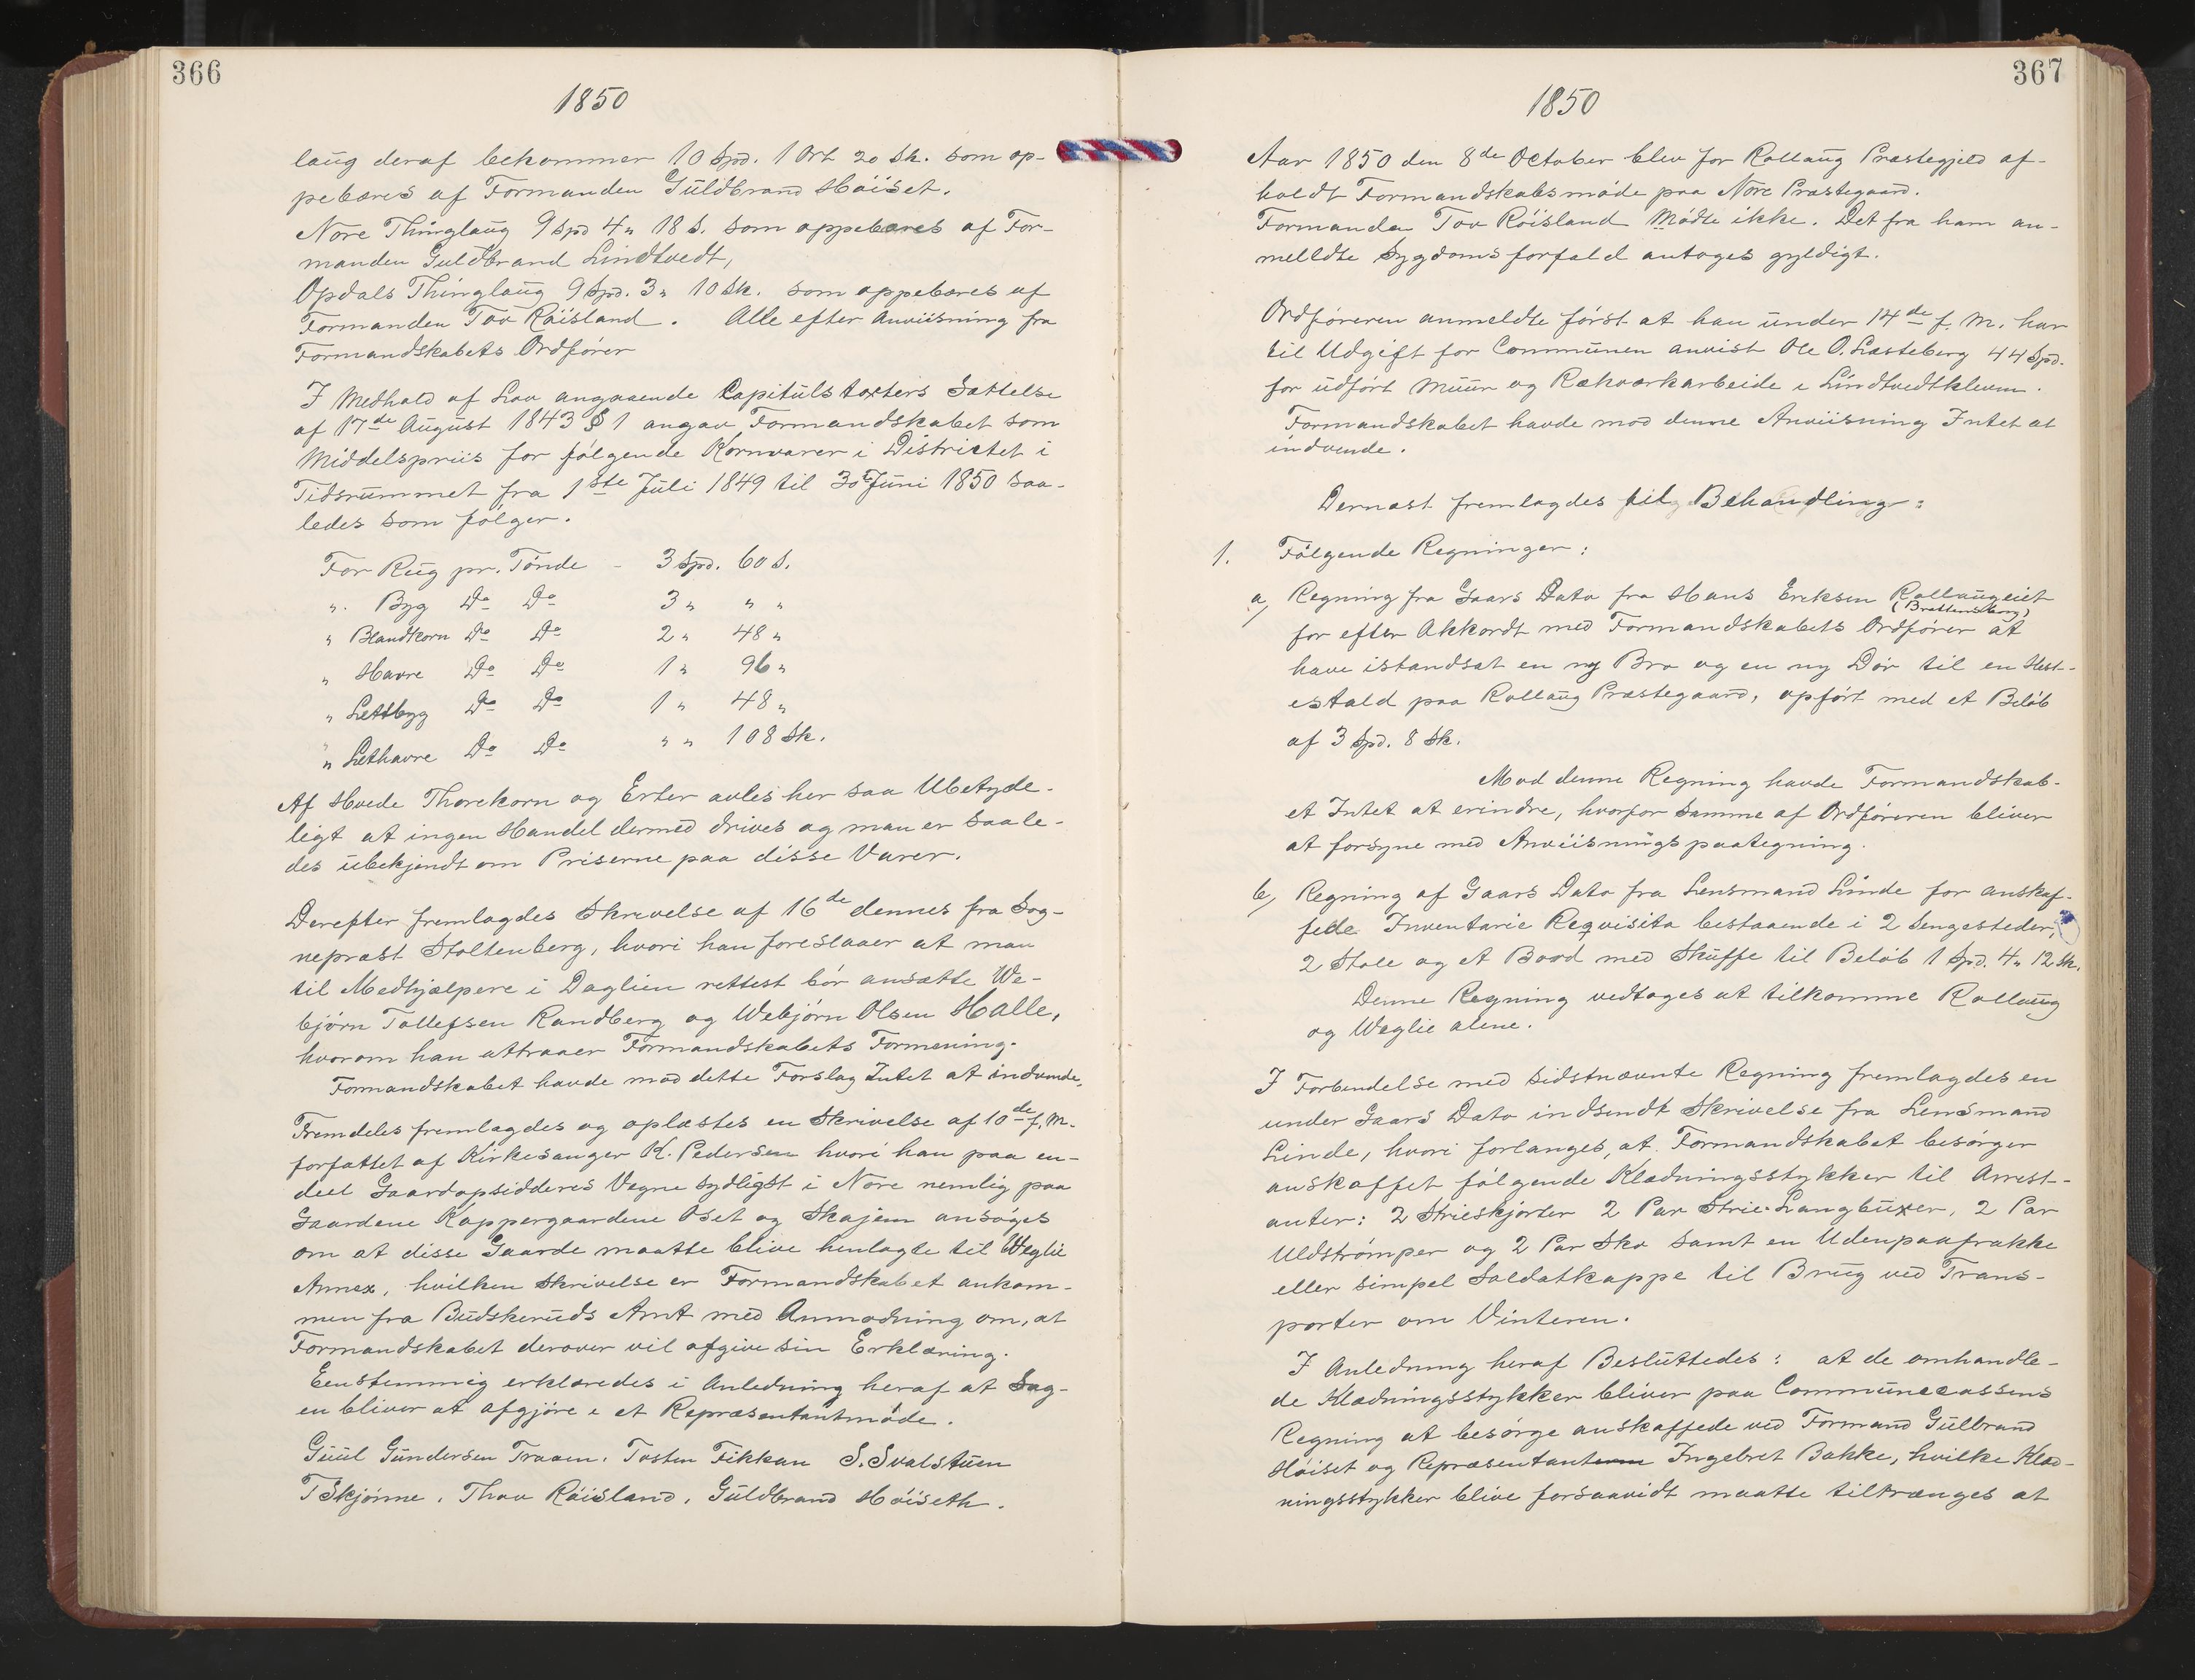 366
1850
laug deraf bekommer 10 Spd. 1 Ort 20 Sk. som op-
pebæres af Formanden Guldbrand Høiset.
Nore Thinglaug 9 Spd 4 " 18 S. som oppebæres af For-
manden Guldbrand Lindtvedt,
Opdals Thinglaug 9 Spd. 3 " 10 Sk. som oppebæres af
Formanden Tov Røisland. Alle efter Anviisning fra
Formandskabets Ordfører
I Medhold af Lov angaaende Capitulstaxters Sættelse
af 17de August 1843 § 1 angav Formandskabet som
Middelspriis for følgende Kornvarer i Districtet i
Tidsrummet fra 1ste Juli 1849 til 30te Juni 1850 saa-
ledes som følger.
For Rug pr. Tønde - 3 Spd. 60 S.
" Byg Do Do 3 " " "
" Blandkorn Do Do 2 " 48 "
" Havre Do Do 1 " 96 "
" Lettbyg Do Do 1 " 48 "
" Lethavre Do Do " " 108 Sk.
Af Hvede Thorekorn og Erter avles her saa Ubetyde-
ligt at ingen Handel dermed drives og man er saale-
des ubekjendt om Priserne paa disse Varer.
Derefter fremlagdes Skrivelse af 16de dennes fra Sog-
nepræst Stoltenberg, hvori han foreslaaer at man
til Medhjælpere i Daglien rettest bør ansætte We-
bjørn Tollefsen Randberg og Webjørn Olsen Halle,
hvorom han attraaer Formandskabets Formening.
Formandskabet havde mod dette Forslag Intet at indvende.
Fremdeles fremlagdes og oplæstes en Skrivelse af 10de f. M.
forfattet af Kirkesanger K. Pedersen hvori han paa en-
deel Gaardopsidderes Vegne sydligst i Nore nemlig paa
Gaardene Koppergaardene Oset og Skajem ansøges
om at disse Gaarde maatte blive henlagte til Weglie
Annex, hvilken Skrivelse er Formandskabet ankom-
men fra Budskeruds Amt med Anmodning om, at
Formandskabet derover vil afgive sin Erklæring.
Eenstemmig erklæredes i Anledning heraf at Sag-
en bliver at afgjøre i et Repræsentantmøde.
Guul Gundersen Traaen. Tosten Fikkan S. Svalstuen
T Skjønne. Thov Røisland. Guldbrand Høiseth.
367
1850
Aar 1850 den 8de October blev for Rollaug Præstegjeld af-
holdt Formandskabsmøde paa Nore Præstegaard.
Formanden Tov Røisland Mødte ikke. Det fra ham an-
melldte Sygdomsforfald antoges gyldigt.
Ordføreren anmeldte først at han under 14de f. M. har
til Udgift for Communen anvist Ole O. Læsteberg 44 Spd.
for udført Muur og Rækværkarbeide i Lindtvedtkleven.
Formandskabet havde mod denne Anviisning Intet at
indvende.
Dernæst fremlagdes til Behandling:
1. Følgende Regninger:
a) Regning fra Gaars Dato fra Hans Eriksen Rollaugeiet
(Brattensberg)
for efter Akkordt med Formandskabets Ordfører at
have istandsat en ny Bro og en ny Dør til en Hest-
estald paa Rollaug Præstegaard, opført med et Beløb
af 3 Spd. 8 Sk.
Mod denne Regning havde Formandskab-
et Intet at erindre, hvorfor samme af Ordføreren bliver
at forsyne med Anviisningspaategning.
b) Regning af Gaars Dato fra Lensmand Linde for anskaf-
fede Inventarie Reqvisita bestaaende i 2 Sengesteder,
2 Stole og et Bord med Skuffe til Beløb 1 Spd. 4 " 12 Sk.
Denne Regning vedtoges at tilkomme Rollaug
og Weglie alene.
I Forbindelse med sidstnævnte Regning fremlagdes en
under Gaars Dato indsendt Skrivelse fra Lensmand
Linde, hvori forlanges, at Formandskabet besørger
anskaffet følgende Klædningsstykker til Arrest-
anter: 2 Strieskjorter 2 Par Strie-Langbuxer, 2 Par
Uldstrømper og 2 Par Sko samt en Udenpaafrakke
eller simpel Soldatkappe til Brug ved Trans-
porter om Vinteren.
I Anledning heraf Besluttedes: at de omhandle-
de Klædningsstykker bliver paa Communecassens
Regning at besørge anskaffede ved Formand Gulbrand
Høiset og Repræsentant Ingebret Bakke, hvilke Klæd-
ningsstykker blive forsaavidt maatte tiltrænges at